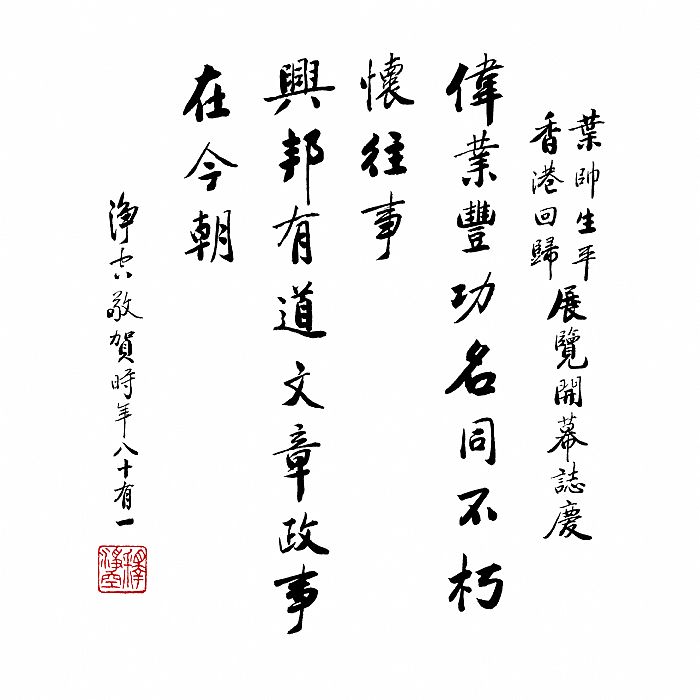 葉帥生平
香港回歸
展覽開幕誌慶
偉業豐功名同不朽
懷往事
興邦有道文章政事
在今朝
淨空敬賀時年八十有一
釋淨空